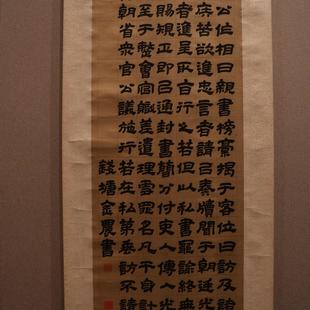 公位相日親書榜稾揭于客位曰訪及諸
疾苦欲進忠言者請以奏牘聞于朝廷光
者進呈取旨行之若但以私書寵諭終無
賜規正即以通封書簡分付吏人傳入光
至于整會官職差遣理雪罪名凡干身計
朝省衆官公議施行若在私第垂訪不請
錢塘金農書